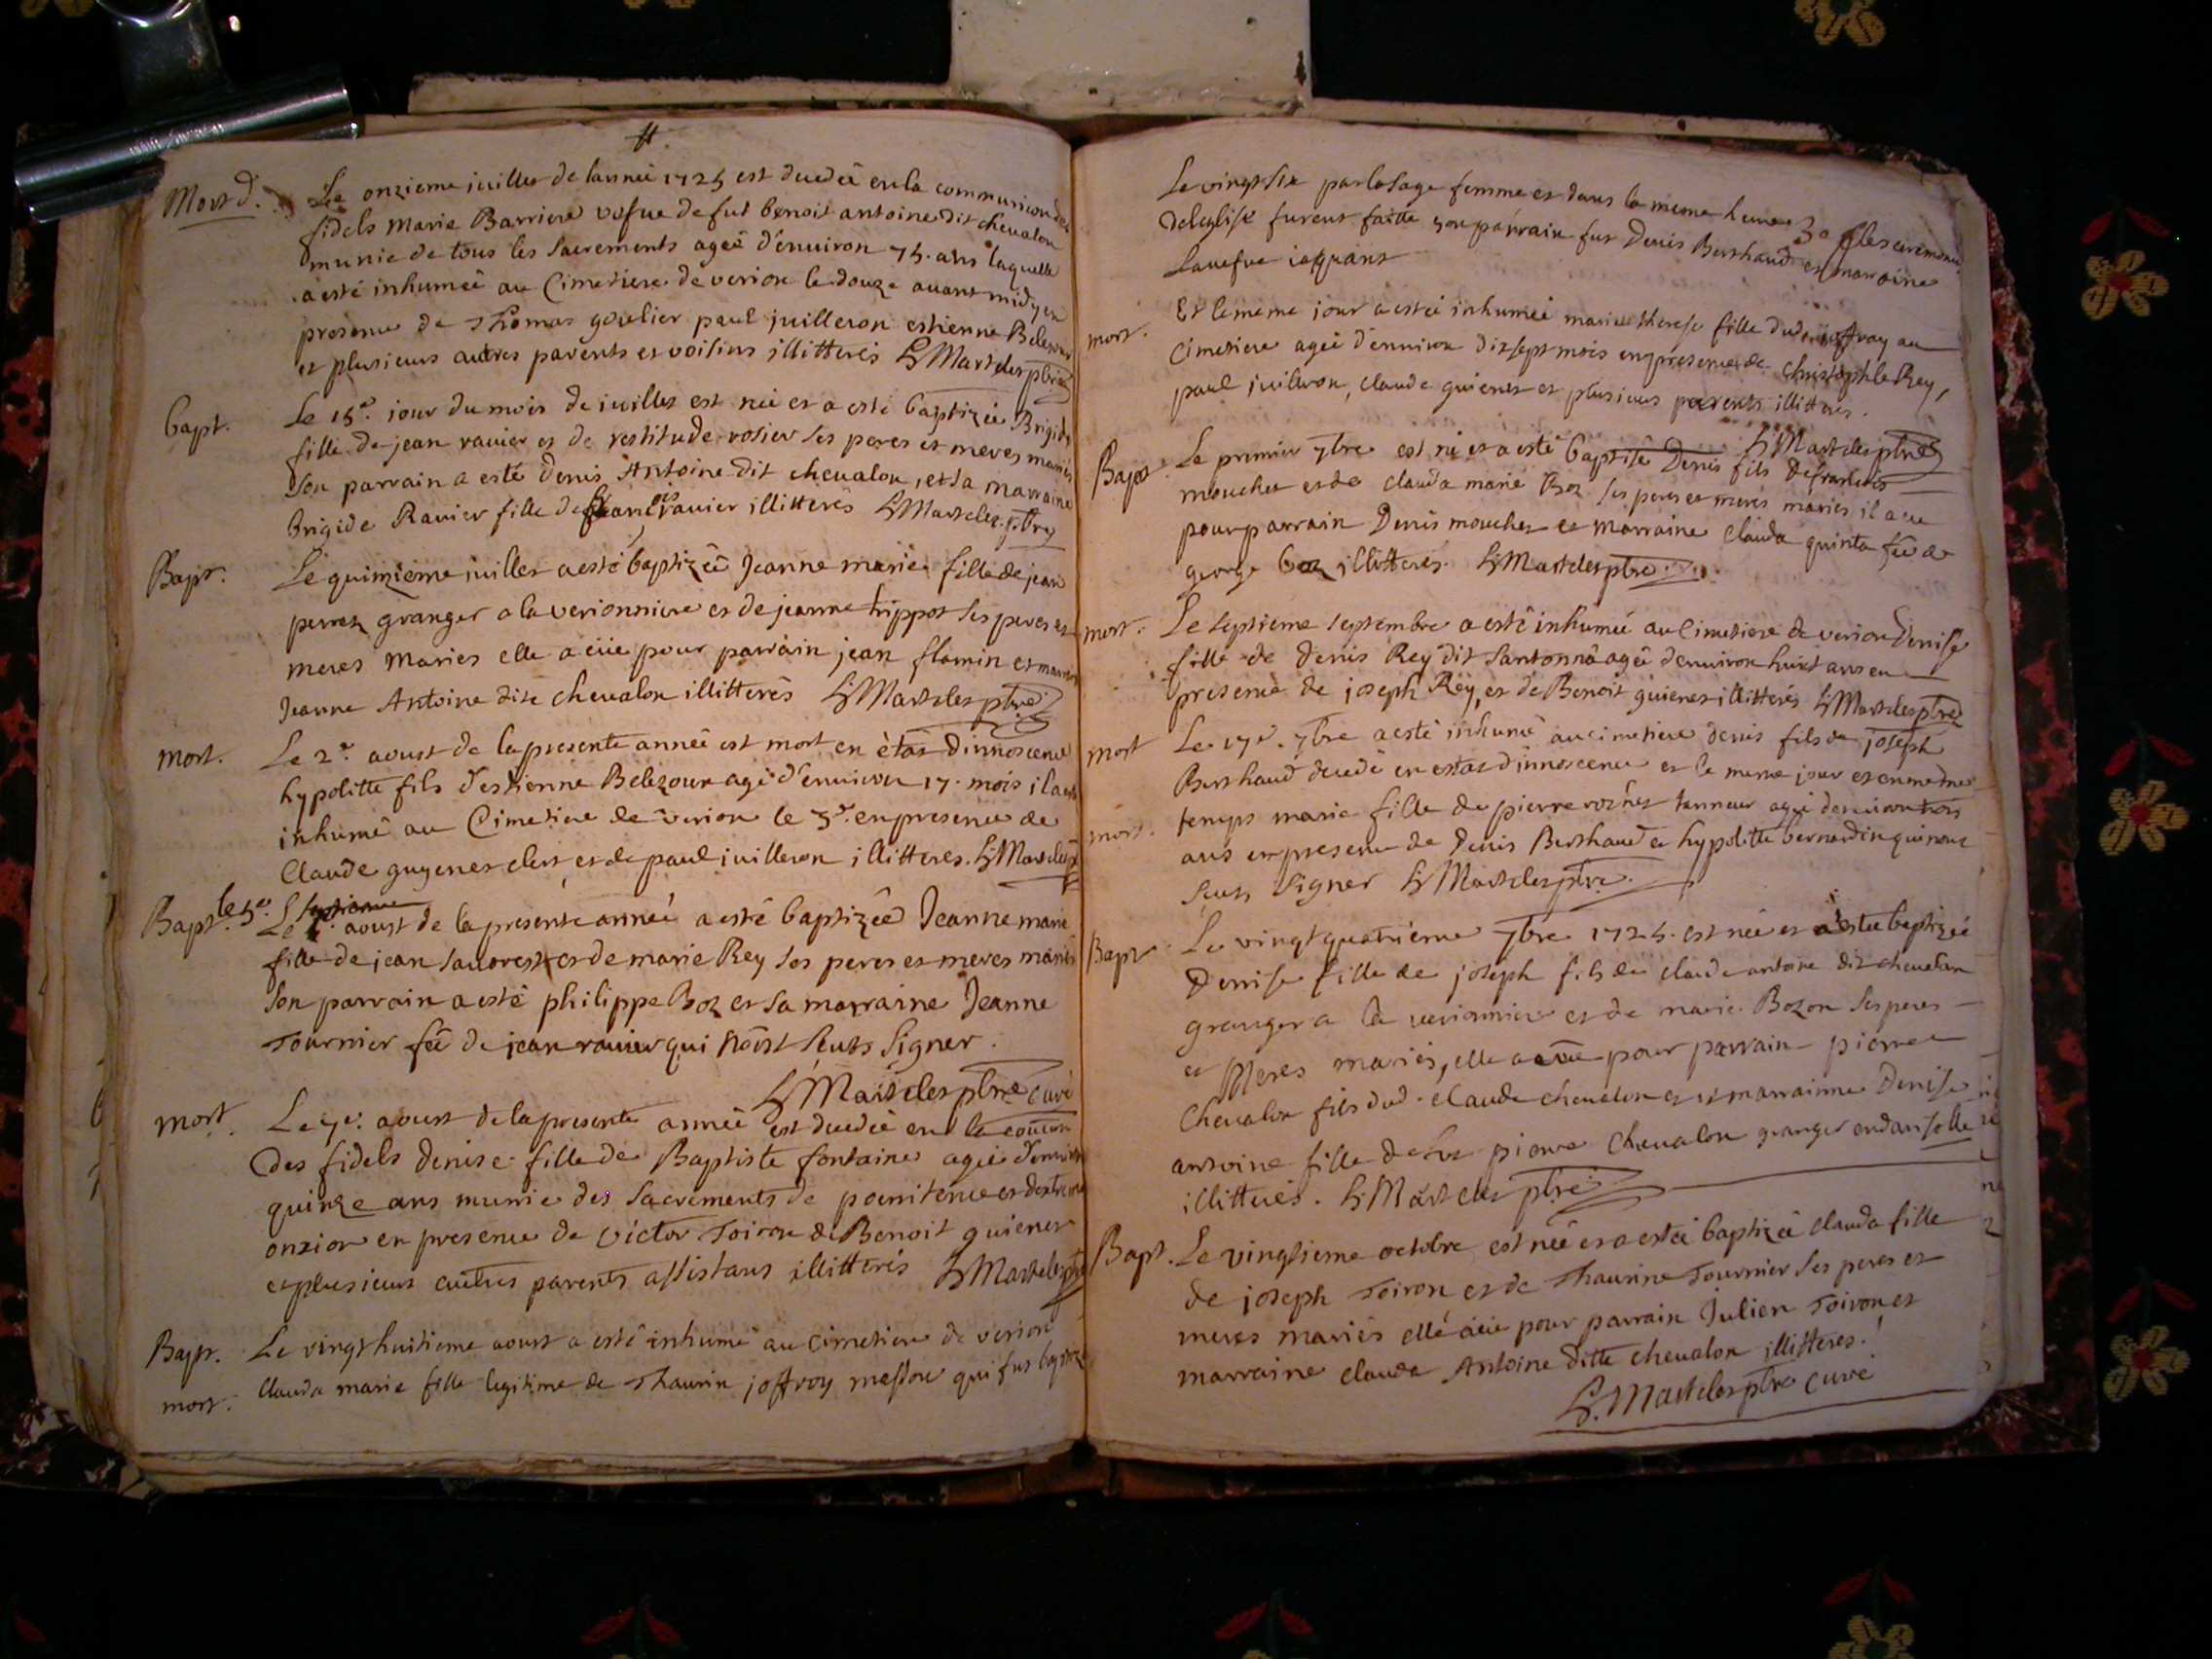 Mort d. Le onzieme juillet de lannée 1725 est decedée en la communion des
fidels Marie Barriere vefue de fut benoit antoine dit chevalon
munie de tous les sacrements ageé d'enuiron 75. ans laquelle
a esté inhumeé au Cimetiere de verion le douze auant midy en
presence de Thomas goulier paul juilleron estienne Belezour
et plusieurs autres parents et voisins illitterés Martelet ptre
bapt. Le 15e. jour du mois de juillet est neé et a esté baptizeé Brigide
fille de jean rauier et de restitude rosier ses peres et meres mariés
son parrain a esté denis Antoine dit cheualon, et sa marraine
Brigide Rauier fille de francois rauier illitterés Martelet ptre
Bapt. Le quinzieme juillet a esté baptizeé Jeanne marie fille de jean
perrez granger a la verionniere et de jeanne trippoz ses peres et
meres Mariés elle a eüe pour parrain jean flamin et marraine
Jeanne Antoine dite cheualon illitterés Martelet ptre
mort. Le 2e. aoust de la presente anneé est mort en êtat d'innoscence
hypolitte fils d'estienne Belezour agé d'enuiron 17. mois il a esté
inhumé au Cimetiere de verion le 3e. en presence de
Claude guyenet clerc, et de paul juilleron illitteres. Martelet
Bapt. le 5e. septieme
Le aoust de la presente anneé a esté baptizeé Jeanne marie
fille de jean sauorest et de marie Rey ses peres et meres mariés
son parrain a esté philippe Boz et sa marraine Jeanne
Tournier fée de jean rauier qui nont sceuts signer.
Martelet ptre curé
mort. Le 7e. aoust de la presente anneé est decedeé en la coṁion
des fidels denise fille de Baptiste fontaine ageé d'enuiron
quinze ans munie des sacrements de poenitence et d'extreme
onxion en presence de victor Toiron de Benoit guienet
et plusieurs autres parents assistans illitterés Martelet ptre
Bapt. Le vingt huitieme aoust a esté inhumé au cimetiere de verion
mort. Clauda marie fille legitime de Thaurin joffroy masson qui fut baptizé
Le vingt six par la sage femme et dans la meme heure les ceremonies
de leglise furent faitte son parrain fut Denis Berthaud et marraine
La vefue
mort. Et le meme jour a estée inhumeé marie therese fille dud. joffroy au
Cimetiere ageé d'enuiron dix sept mois en presence de christophle Rey,
paul juilleron, claude guienet et plusieurs parents illitteres.
Martelet ptre
Bapt. Le premier 7bre est né et a esté baptisé Denis fils de francois
mouchet et de clauda marie Boz ses peres et meres mariés il a eu
pour parrain Denis mouchet et marraine clauda quinta fée de
george Boz illitterés. Martelet ptre.
mort. Le septieme septembre a esté inhumeé au cimetiere de verion Denise
fille de denis Rey dit santonna ageé d'enuiron huict ans en
presence de joseph Rey, et de Benoit guienet illitterés Martelet ptre
mort Le 17e. 7bre a esté inhumé au cimetiere denis fils de joseph
Berthaud decedé en estat d'innoscence et le meme jour et en meme
mort. temps marie fille de pierre rochet tanneur ageé denuiron trois
ans en presence de Denis Berthaud et hypolitte bernardin qui nont
sceuts signer Martelet ptre.
Bapt Le vingt quatrieme 7bre 1725. est neé et a estée baptizeé
Denise fille de joseph fils de claude antoine dit cheualon
granger a la verionniere et de marie Bozon ses peres
et Meres mariés, elle a eüe pour parrain pierre
Cheualon fils dud. claude cheualon et marrainne Denise
antoine fille de fut pierre Cheualon granger
illitterés. Martelet ptre
Bapt. Le vingtieme octobre est neé et a estée baptizeé clauda fille
de joseph Toiron et de Thaurine Tournier ses peres et
meres mariés elle a eüe pour parrain Julien Toiron et
marraine clauda Antoine ditte cheualon illitteres.
Martelet ptre curé